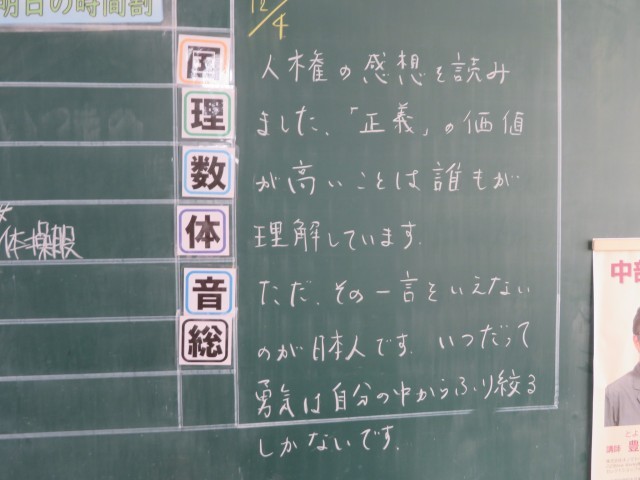 明日の時間割
12/4
国
理
数
体
音
総
体操服
人権の感想を読み
ました。「正義」の価値
が高いことは誰もが
理解しています。
ただ、その一言をいえない
のが日本人です。いつだって
勇気は自分の中からふり絞る
しかないです。
中部
講師 豊